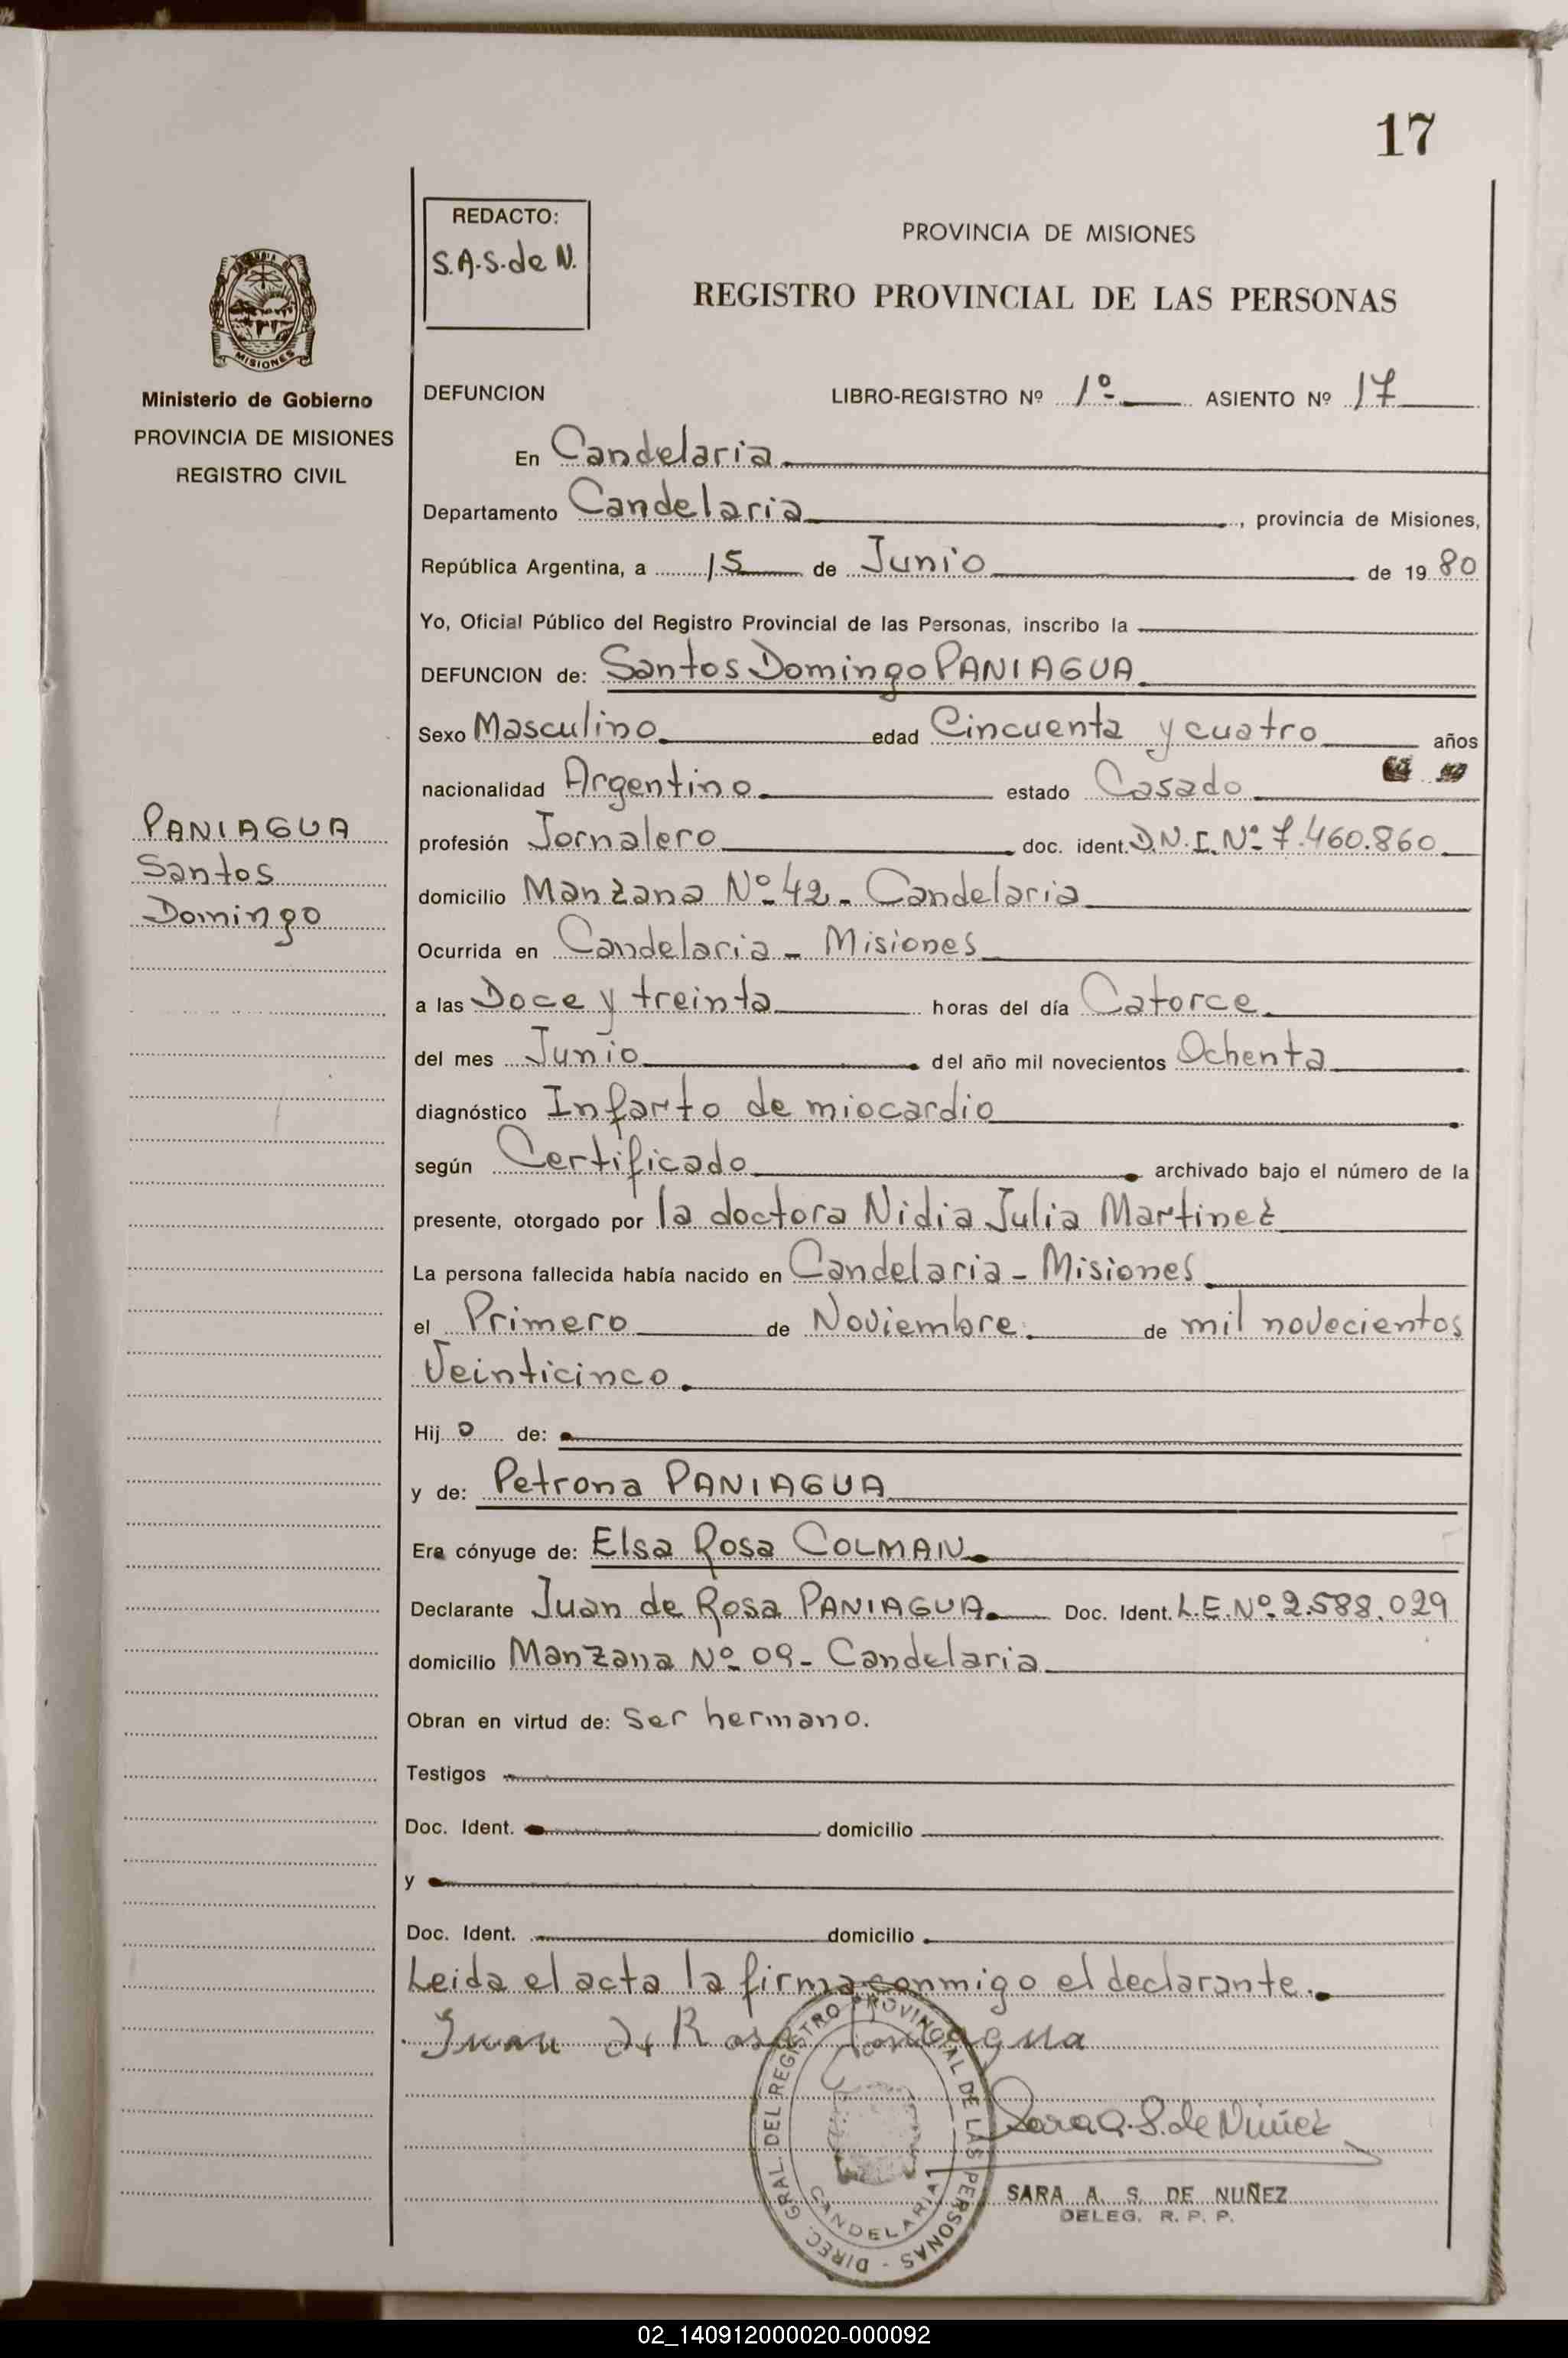 17
REDACTO:
S.A.S. de N.
PROVINCIA DE MISIONES
REGISTRO PROVINCIAL DE LAS PERSONAS
MISIONES
Ministerio de Gobierno
PROVINCIA DE MISIONES
REGISTRO CIVIL
PANIAGUA
Santos
Domingo
DEFUNCION LIBRO-REGISTRO Nº 1º ASIENTO Nº 17
En Candelaria
Departamento Candelaria, provincia de Misiones,
República Argentina, a 15 de Junio de 1980
Yo, Oficial Público del Registro Provincial de las Personas, inscribo la
DEFUNCION de: Santos Domingo PANIAGUA
Sexo Masculino edad Cincuenta y cuatro años
nacionalidad Argentino estado Casado
profesión Jornalero doc. ident. D.N.I. Nº 7.460.860
domicilio Manzana Nº 42 - Candelaria
Ocurrida en Candelaria - Misiones
a las Doce y treinta horas del día Catorce
del mes Junio del año mil novecientos Ochenta
diagnóstico Infarto de miocardio
según Certificado archivado bajo el número de la
presente, otorgado por la doctora Nidia Julia Martinez
La persona fallecida había nacido en Candelaria - Misiones
el Primero de Noviembre de mil novecientos
Veinticinco
Hijo de:
y de: Petrona PANIAGUA
Era cónyuge de: Elsa Rosa COLMAN
Declarante Juan de Rosa PANIAGUA Doc. Ident. L.E. Nº 2.588.029
domicilio Manzana Nº 09 - Candelaria
Obran en virtud de: Ser hermano.
Testigos
Doc. Ident. domicilio
y
Doc. Ident. domicilio
Leida el acta la firma conmigo el declarante.
Juan de Rosa Paniagua
DIREC. GRAL. DEL REGISTRO PROVINCIAL DE LAS PERSONAS -
CANDELARIA
Sara A. S. de Nuñez
SARA A. S. DE NUÑEZ
DELEG. R. P. P.
02_140912000020-000092